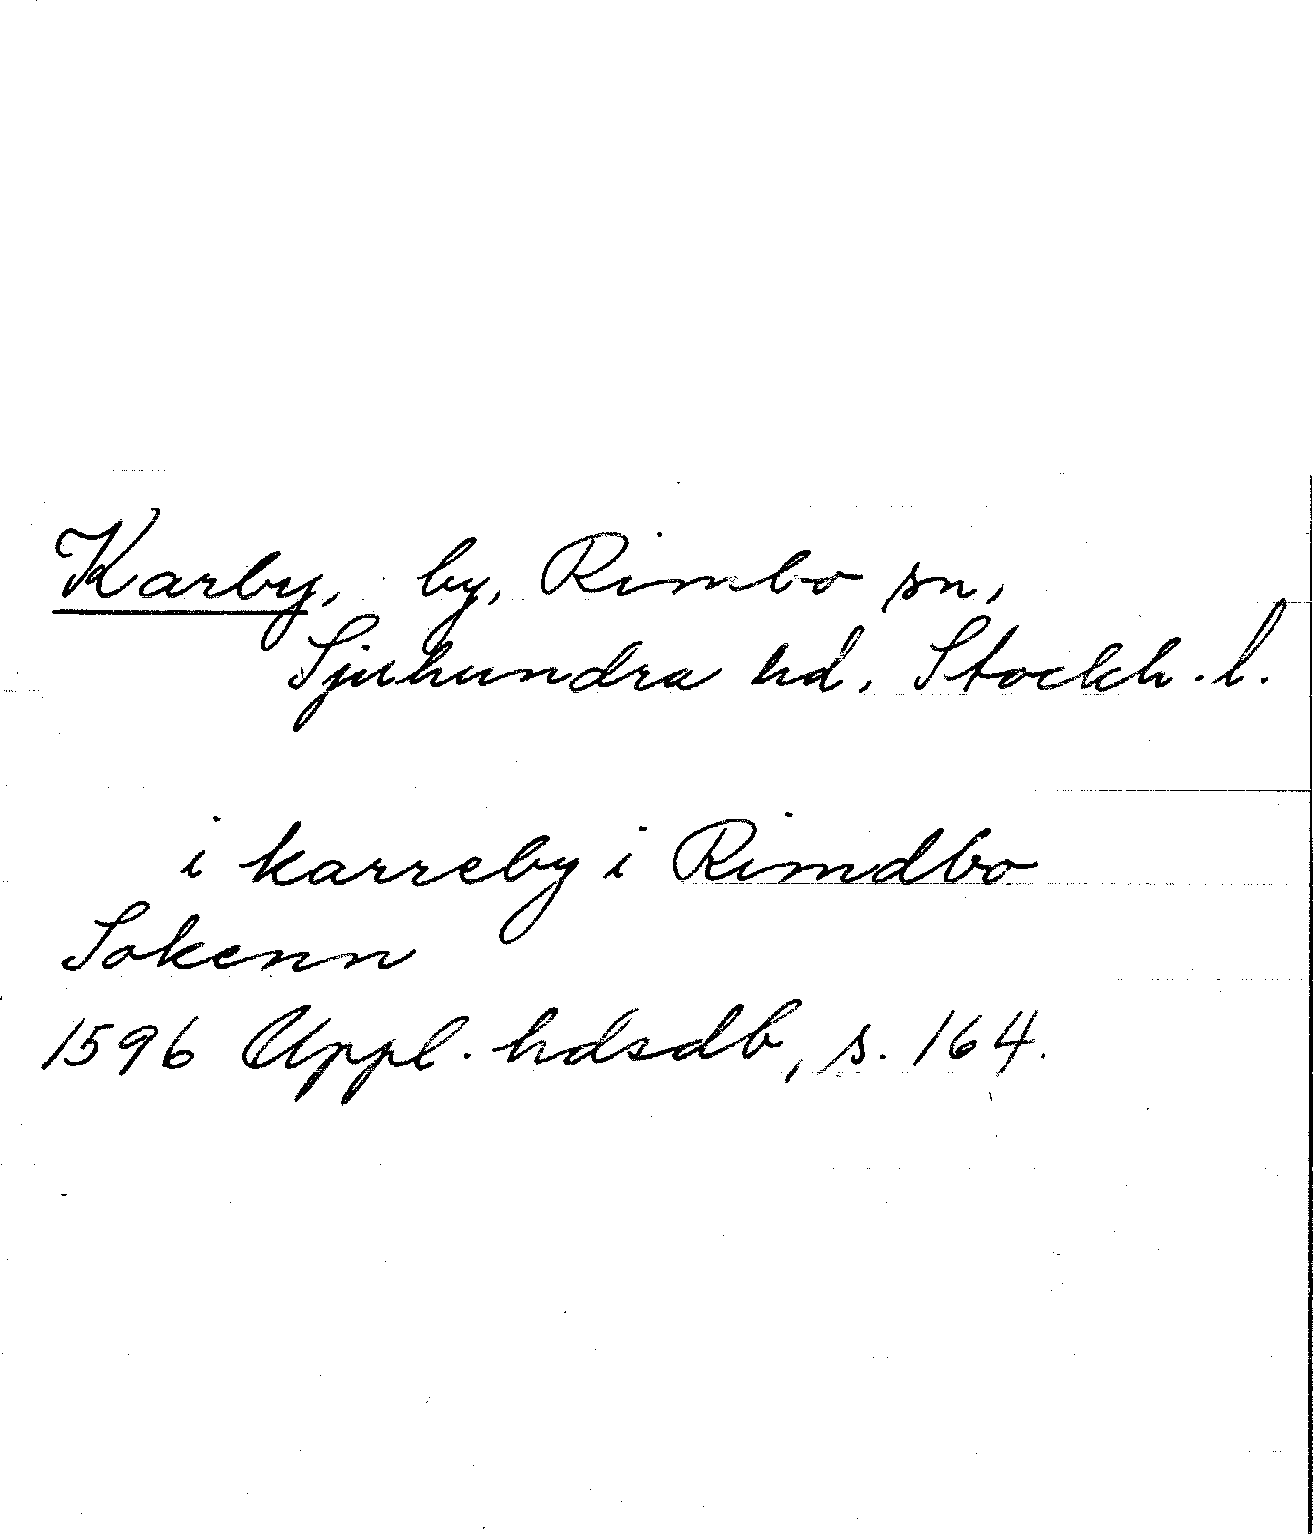 Karby, by, Rimbo sn,
Sjuhundra hd, Stockh. l.
i karreby i Rimdbo
Sokenn
1596 Uppl. hdsdb, s. 164.